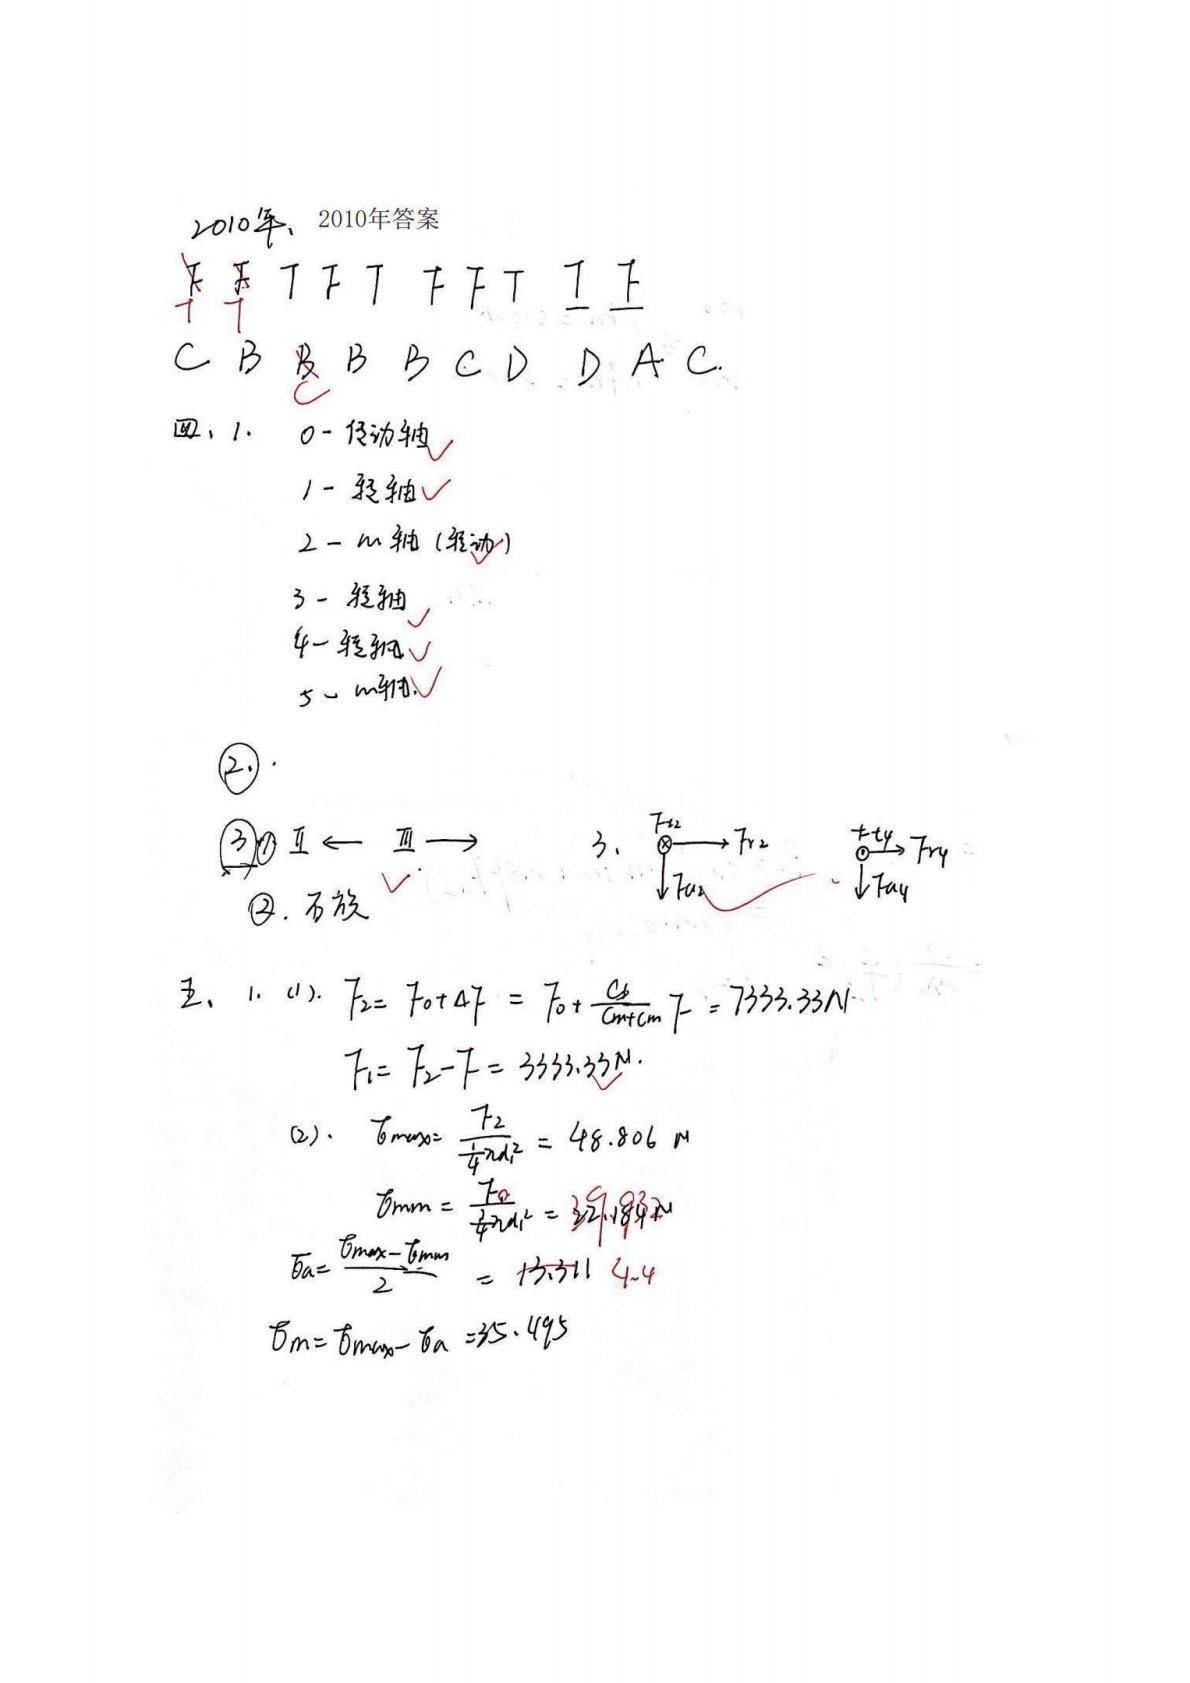 2010年、 2010年答案
F F T F T F F T T F
T T
C B B B B C D D A C.
C
四、1. 0-传动轴
1-转轴
2-m轴(转动)
3-转轴
4-转轴
5-m轴.
②.
③① Ⅱ ← Ⅲ → 3. Ft2 ⊗→Fr2 ↓Fa2 Ft4 ⊙→Fr4 ↓Fa4
②. 右旋
五、1. (1). F2= F0+ΔF = F0+ Cb/(Cm+Cm) F = 7333.33N.
F1= F2-F = 3333.33N.
(2). σmax= F2/(1/4 πd1²) = 48.806 N
σmin = F0/(1/4 πd1²) = 39.932
σa= (σmax-σmin)/2 = 13.311 4.4
σm=σmax-σa =35.495